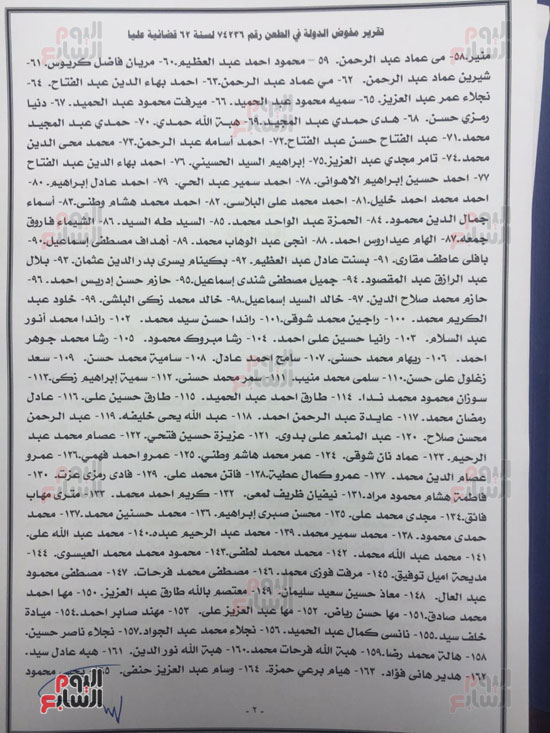 تقرير مفوض الدولة في الطعن رقم ٧٤٢٣٦ لسنة ٦٢ قضائية عليا
اليوم السابع
منير.٥٨- مى عماد عبد الرحمن. ٥٩ - محمود احمد عبد العظيم.٦٠- مريان فاضل كريوس. ٦١-
شيرين عماد عبد الرحمن. ٦٢- مي عماد عبد الرحمن.٦٣- احمد بهاء الدين عبد الفتاح. ٦٤-
نجلاء عمر عبد العزيز. ٦٥- سميه محمود عبد الحميد. ٦٦- ميرفت محمود عبد الحميد. ٦٧- دنيا
رمزي حسن. ٦٨- هدى حمدي عبد المجيد.٦٩- هبة الله حمدي. ٧٠- حمدي عبد المجيد
محمد.٧١- عبد الفتاح حسن عبد الفتاح.٧٢- احمد أسامه عبد الرحمن.٧٣- محمد محى الدين
محمد.٧٤- تامر مجدي عبد العزيز.٧٥- إبراهيم السيد الحسيني. ٧٦- احمد بهاء الدين عبد الفتاح
٧٧- احمد حسين إبراهيم الاهوانى. ٧٨- احمد سمير عبد الحي. ٧٩- احمد عادل إبراهيم. ٨٠-
احمد محمد احمد خليل.٨١- احمد محمد على البلاسى. ٨٢- احمد محمد هشام وطنى.٨٣- أسماء
جمال الدين محمود. ٨٤- الحمزة عبد الواحد محمد. ٨٥- السيد طه السيد. ٨٦- الشيماء فاروق
جمعه.٨٧- الهام عيداروس احمد. ٨٨- انجى عبد الوهاب محمد. ٨٩- أهداف مصطفى إسماعيل.٩٠-
بافلى عاطف مقارى. ٩١- بسنت عادل عبد العظيم. ٩٢- بكينام يسرى بدر الدين عثمان. ٩٣- بلال
عبد الرازق عبد المقصود. ٩٤- جميل مصطفى شندى إسماعيل.٩٥- حازم حسن إدريس احمد. ٩٦-
حازم محمد صلاح الدين. ٩٧- خالد السيد إسماعيل.٩٨- خالد محمد زكى البلشى. ٩٩- خلود عبد
الكريم محمد. ١٠٠- راجين محمد شوقى.١٠١- راندا حسن سيد محمد. ١٠٢- راندا محمد أنور
عبد السلام. ١٠٣- رانيا حسين على احمد. ١٠٤- رشا مبروك محمود. ١٠٥- رشا محمد جوهر
احمد. ١٠٦- ريهام محمد حسنى.١٠٧- سامح احمد عادل. ١٠٨- سامية محمد حسن. ١٠٩- سعد
زغلول على حسن.١١٠- سلمى محمد منيب. ١١١- سمر محمد حسنى.١١٢- سمية إبراهيم زكى.١١٣-
سوزان محمود محمد ندا. ١١٤- طارق احمد عبد الحميد. ١١٥- طارق حسين على. ١١٦- عادل
رمضان محمد. ١١٧- عايدة عبد الرحمن احمد. ١١٨- عبد الله يحى خليفه. ١١٩- عبد الرحمن
محسن صلاح. ١٢٠- عبد المنعم على بدوى. ١٢١- عزيزة حسين فتحي.١٢٢- عصام محمد عبد
الرحيم. ١٢٣- عماد نان شوقى. ١٢٤- عمر محمد هاشم وطني. ١٢٥- عمرو احمد فهمي.١٢٦- عمرو
عصام الدين محمد. ١٢٧- عمرو كمال عطية.١٢٨- فاتن محمد على. ١٢٩- فادى رمزى عزت. ١٣٠-
فاطمة هشام محمود مراد.١٣١- نيفيان ظريف لمعى. ١٣٢- كريم احمد محمد. ١٣٣- مترى مهاب
فائق. ١٣٤- مجدى محمد على. ١٣٥- محسن صبرى إبراهيم.١٣٦- محمد حسنين محمد.١٣٧- محمد
حمدى محمود. ١٣٨- محمد سمير محمد. ١٣٩- محمد عبد الرحيم عبده.١٤٠- محمد عبد الله على.
١٤١- محمد عبد الله محمد. ١٤٢- محمد محمد لطفى.١٤٣- محمود محمد محمد العيسوى. ١٤٤-
مديحة اميل توفيق. ١٤٥- مرفت فوزى محمد.١٤٦- مصطفى محمد فرحات. ١٤٧- مصطفى محمود
عبد العال. ١٤٨- معاذ حسين سعيد سليمان. ١٤٩- معتصم بالله طارق عبد العزيز. ١٥٠- مها احمد
محمد صادق.١٥١- مها حسن رياض. ١٥٢- مها عبد العزيز على. ١٥٣- مهند صابر احمد.١٥٤- ميادة
خلف سيد.١٥٥- نانسى كمال عبد الحميد. ١٥٦- نجلاء محمد عبد الجواد. ١٥٧- نجلاء ناصر حسين.
١٥٨- هالة محمد رضا.١٥٩- هبة الله فرحات محمد.١٦٠- هبة الله نور الدين. ١٦١- هبه عادل سيد.
١٦٢- هدير هانى فؤاد. ١٦٣- هيام برعي حمزة. ١٦٤- وسام عبد العزيز حنفى. ١٦٥- محمود
اليوم السابع
- ٢ -